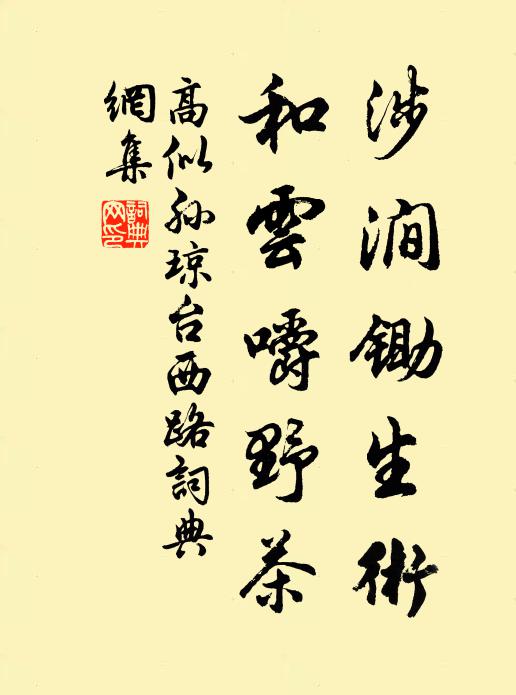 涉澗鋤生術
和雲嚼野茶
高似孙琼台西路詞典
網集
詞典網印